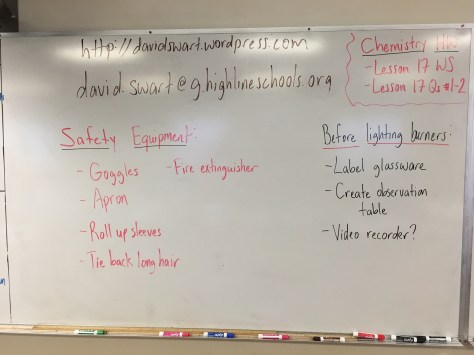 http://davidswart.wordpress.com
david.swart@g.highlineschools.org
Chemistry HW:
- Lesson 17 WS
- Lesson 17 Qs #1-2
Safety Equipment:
- Goggles
- Fire extinguisher
- Apron
- Roll up sleeves
- Tie back long hair
Before lighting burners:
- Label glassware
- Create observation
table
- Video recorder?